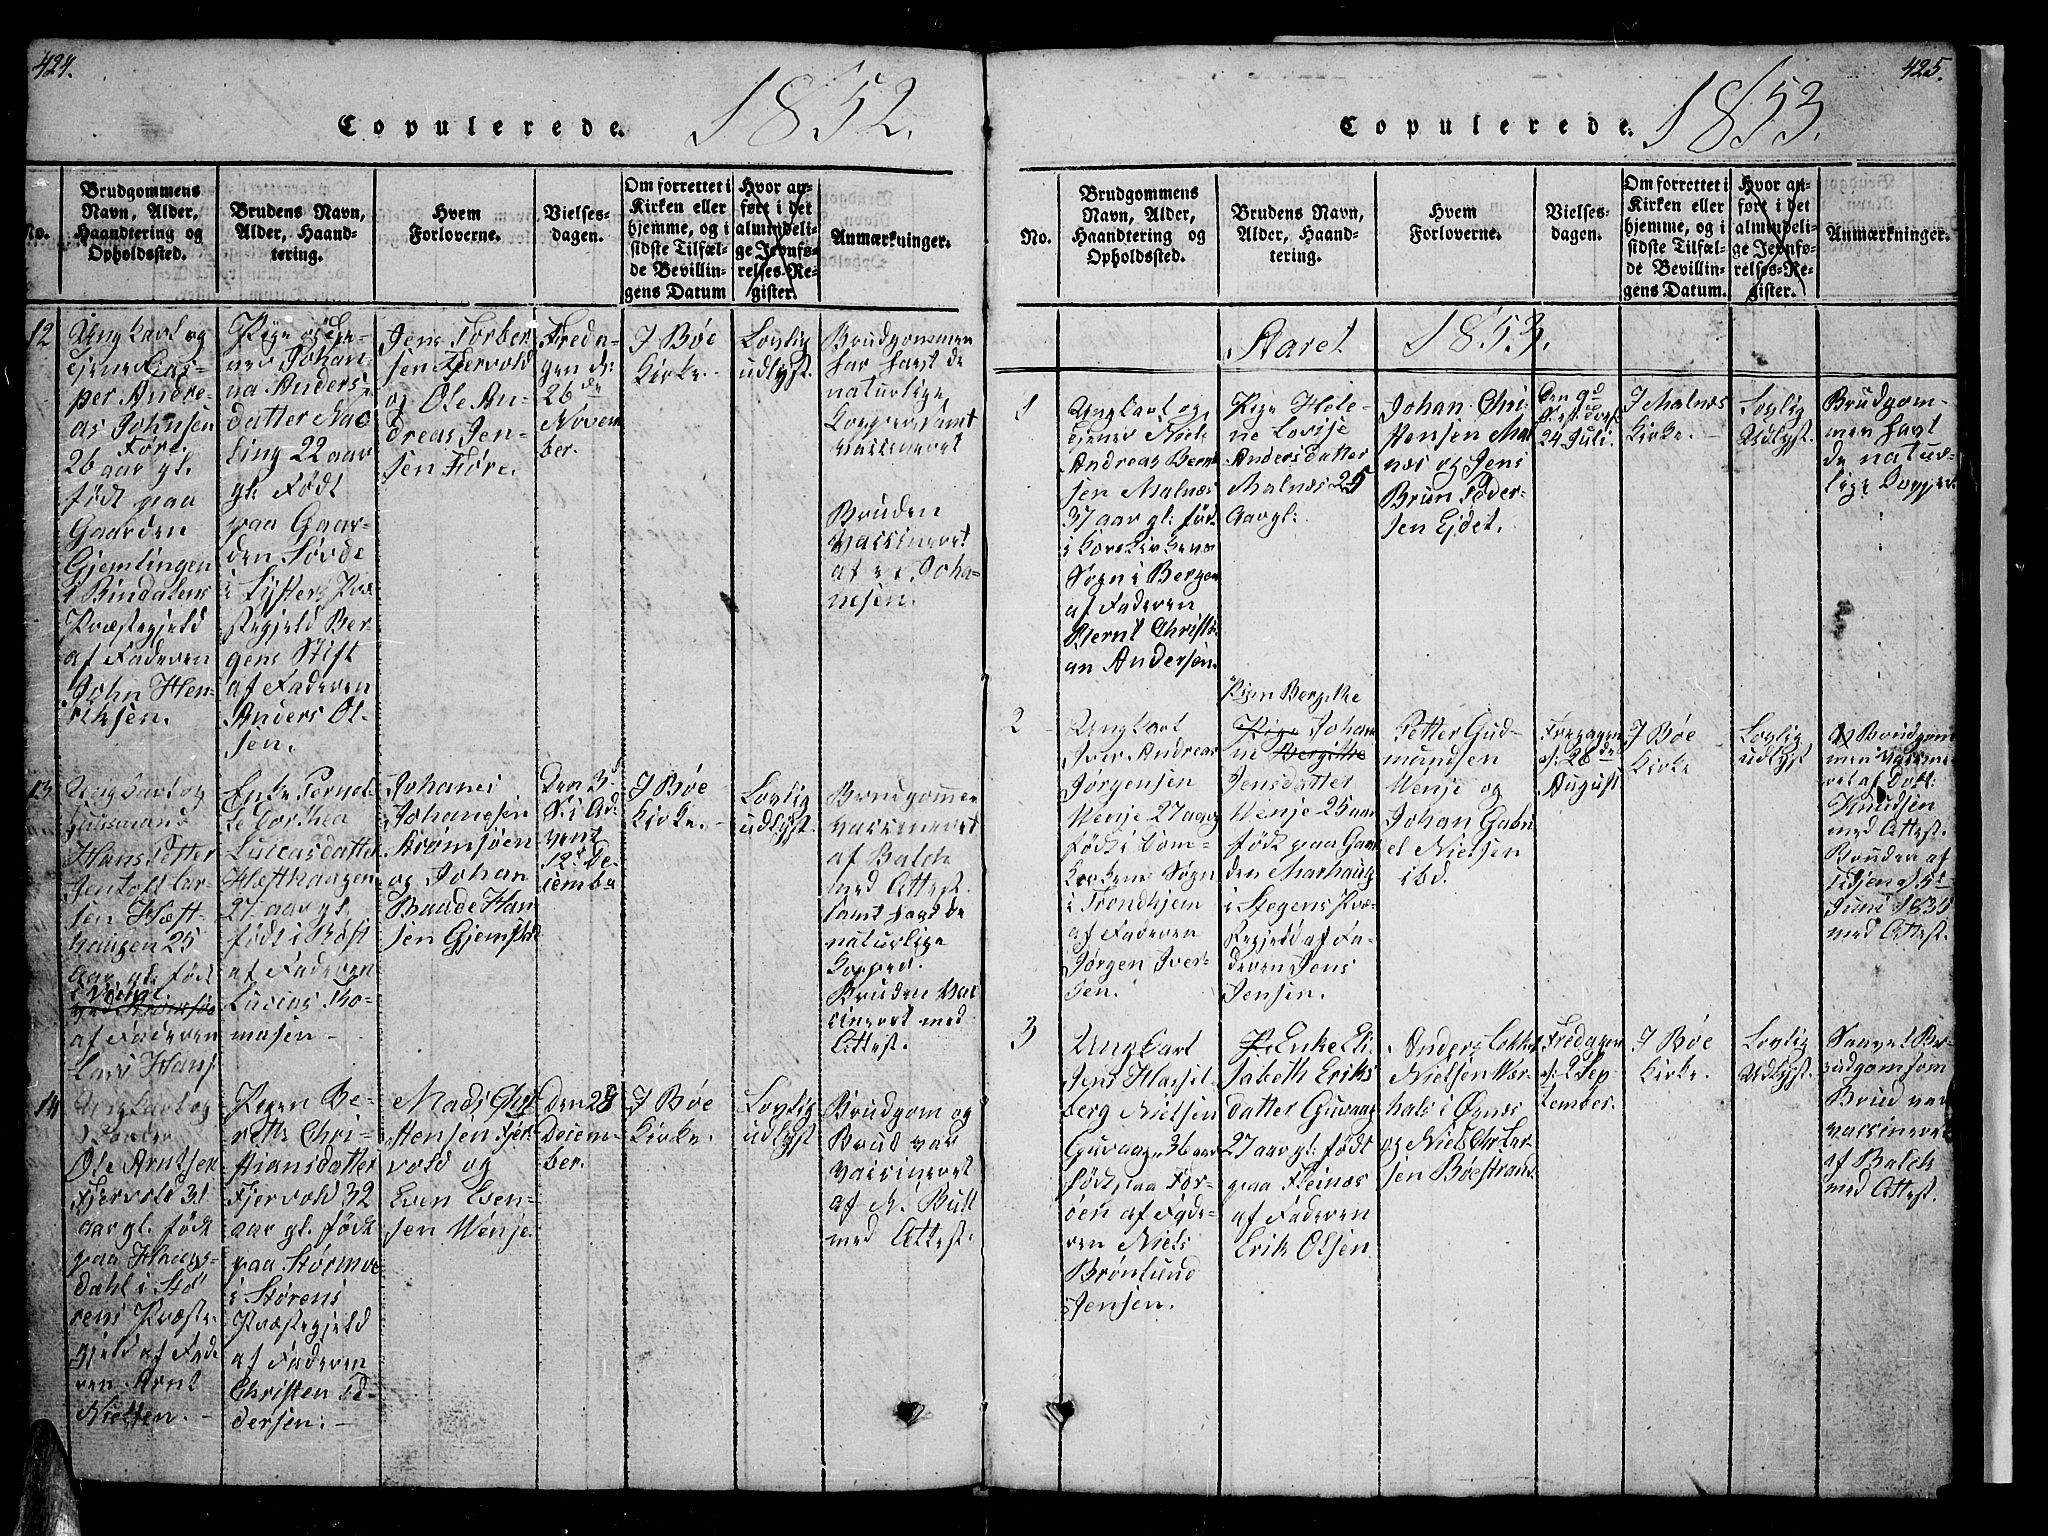 424.
Copulerede. 1852.
No.
Brudgommens
Navn, Alder,
Haandtering og
Opholdssted.
Brudens Navn,
Alder, Haand-
tering.
Hvem
Forloverne.
Vielses-
dagen.
Om forrettet i
Kirken eller
hjemme, og i
sidste Tilfæl-
de Bevillin-
gens Datum
Hvor an-
ført i det
almindeli-
ge Jevnfø-
relses-Re-
gister.
Anmærkninger.
12
Ungkarl og
tjener Cas-
per Andre-
as Johnsen
Føre
26 aar gl.
født paa
Gaarden
Gjemlingen
i Bindalens
Præstegjeld
af Faderen
John Hen-
riksen.
Pige og tje-
ner Johan-
na Anders-
datter Mæ-
ling 22 aar
gl. Født
paa Gaar-
den Søvde
i Lysters Præ-
stegjeld Ber-
gens Stift
af Faderen
Anders Ol-
sen.
Jens Torber
sen Fjervold
og Ole An-
dreas Jen-
sen Føre.
Freda-
gen d:
26de
Novem
ber.
I Bøe
Kirke.
Lovlig
udlyst.
Brudgommen
har havt de
naturlige
Kopper samt
vassineret
Bruden
vassineret
af Joha-
nesen.
13
Ungkarl og
Huusmand
Hans Petter
Jentoft Lar-
sen Hæft-
haugen 25
aar gl. født
af Faderen
Lars Hans
Enke Pernel-
le Dorthea
Lucasdatter
Hæfthaugen
27 aar gl.
født i Røst
af Faderen
Lucias Tho-
masen
Johanes
Johansen
Strømsøen
og Johan
Baade Han
sen Gjemstad
Den 3d
S. i Ad-
vent
12te De-
cember
I Bøe
Kirke.
Lovlig
udlyst.
Brudgommen
vassineret
af Balch
med Attest.
samt havt de
naturlige
Kopper.
Bruden vas
sineret med
Attest.
14
Ungkarl og
Ole Arntsen
Fjervold 31
aar gl. født
paa Haugs-
dahl i Stø
rens Præste-
gjeld af Fade
ren Arnt
Nielsen.
Pigen Be-
reth Chri-
stiansdatter
Fjervold 32
aar gl. født
paa Størmoe
i Størens
Præstegjeld
af Faderen
Christen Pe-
dersen.
Mads Chri
stensen Fjer
vold og
Even Even-
sen Wenje.
den 28
Decem-
ber.
I Bøe
Kirke.
Lovlig
udlyst
Brudgom og
Brud var
vassineret
af N. Bull
med Attest.
425.
Copulerede. 1853.
No.
Brudgommens
Navn, Alder,
Haandtering og
Opholdssted.
Brudens Navn,
Alder, Haand-
tering.
Hvem
Forloverne.
Vielses-
dagen.
Om forrettet i
Kirken eller
hjemme, og i
sidste Tilfæl-
de Bevillin-
gens Datum.
Hvor an-
ført i det
almindeli-
ge Jevnfø-
relses-Re-
gister.
Anmærkninger.
Aaret 1853.
1
Ungkarl og
tjener Niels
Andreas Bernt
sen Malnæs
37 aar gl: født
i Korskirkens
Sogn i Bergen
af Faderen
Bernt Christi
an Andersen.
Pige Hele-
ne Lovise
Andersdatter
Malnæs 25
Aar gl:
Johan Chri
stensen Mal
næs og Jens
Brun Peder-
sen Ejdet.
Den 9d
24 Juli.
I Malnæs
Kirke.
Lovlig
Udlyst.
Brudgom-
men havt
de natur-
lige Kopper
2
Ungkarl
Iver Andreas
Jørgensen
Wenje 27 aar
født i Dom-
kirkens Sogn
i Trondhjem
af Faderen
Jørgen Iver-
sen.
Pigen Bergithe
Pige Johan
ne Bergithe
Jensdatter
Wenje 25 aar
født paa Gaar
den Marhaug
i Stegens Præ-
stegjeld af Fa-
deren Jens
Jensen.
Petter Gud-
mundsen
Wenje og
Johan Gabri
el Nielsen
ibd.
Fredagen
d: 26de
August
I Bøe
Kirke
Lovlig
udlyst
Brudgom
men vassine
ret af Dokt:
Knudsen
med Attest.
Bruden af
5te
Juni 1835
med Attest.
3
Ungkarl
Jens Hassel-
berg Nielsen
Guvaag 36 aar
født paa Før-
øen af Fade-
ren Niels
Brønlund
Jensen.
Enke Eli-
sabeth Eriks
datter Guvaag
27 aar gl: født
paa Steinæs
af Faderen
Erik Olsen.
Anders Cokk
Nielsen Vor-
hals i Øxnæs
og Niels Chr Lar
sen Bøestrand
Fredagen
d: 2 Sep-
tember.
I Bøe
Kirke.
Lovlig
Udlyst.
Saavel Br-
udgom som
Brud var
vassineret
af Balch
med Attest.